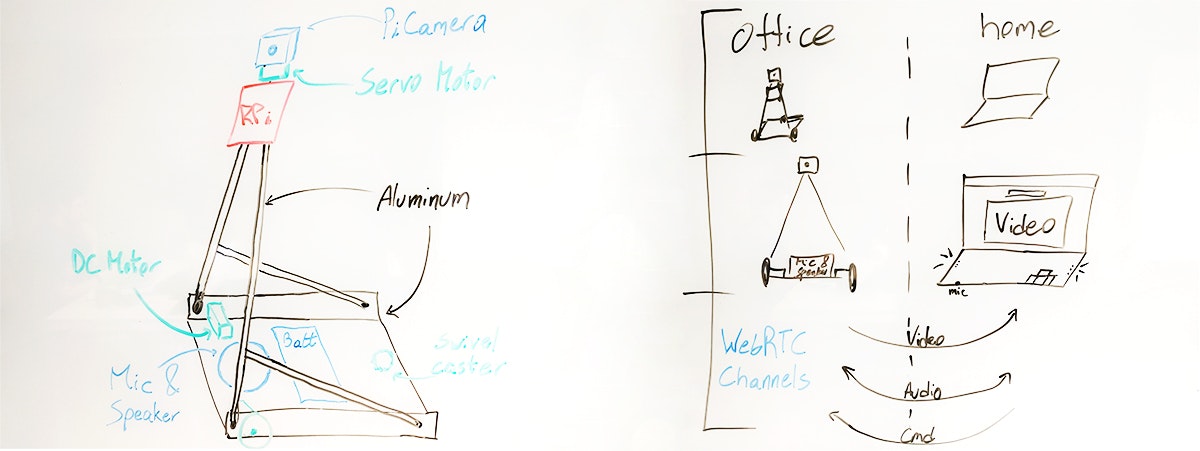 PiCamera
Servo Motor
RPi
Aluminum
DC Motor
Batt
swivel
caster
Mic &
Speaker
office
home
Video
Mic &
Speaker
mic
WebRTC
Channels
Video
Audio
Cmd